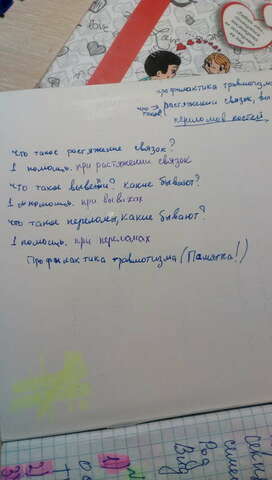 профилактика травмотизма
что такое → растяжении связок, вы
переломов костей.
Что такое растяжение связок?
1 помощь. при растяжении связок
Что такое вывехи? какие бывают?
1 помощь. при вывихах
Что такое переломы, какие бывают?
1 помощь. при переломах
Профилактика травмотизма (Памятка!)
Род
Вид